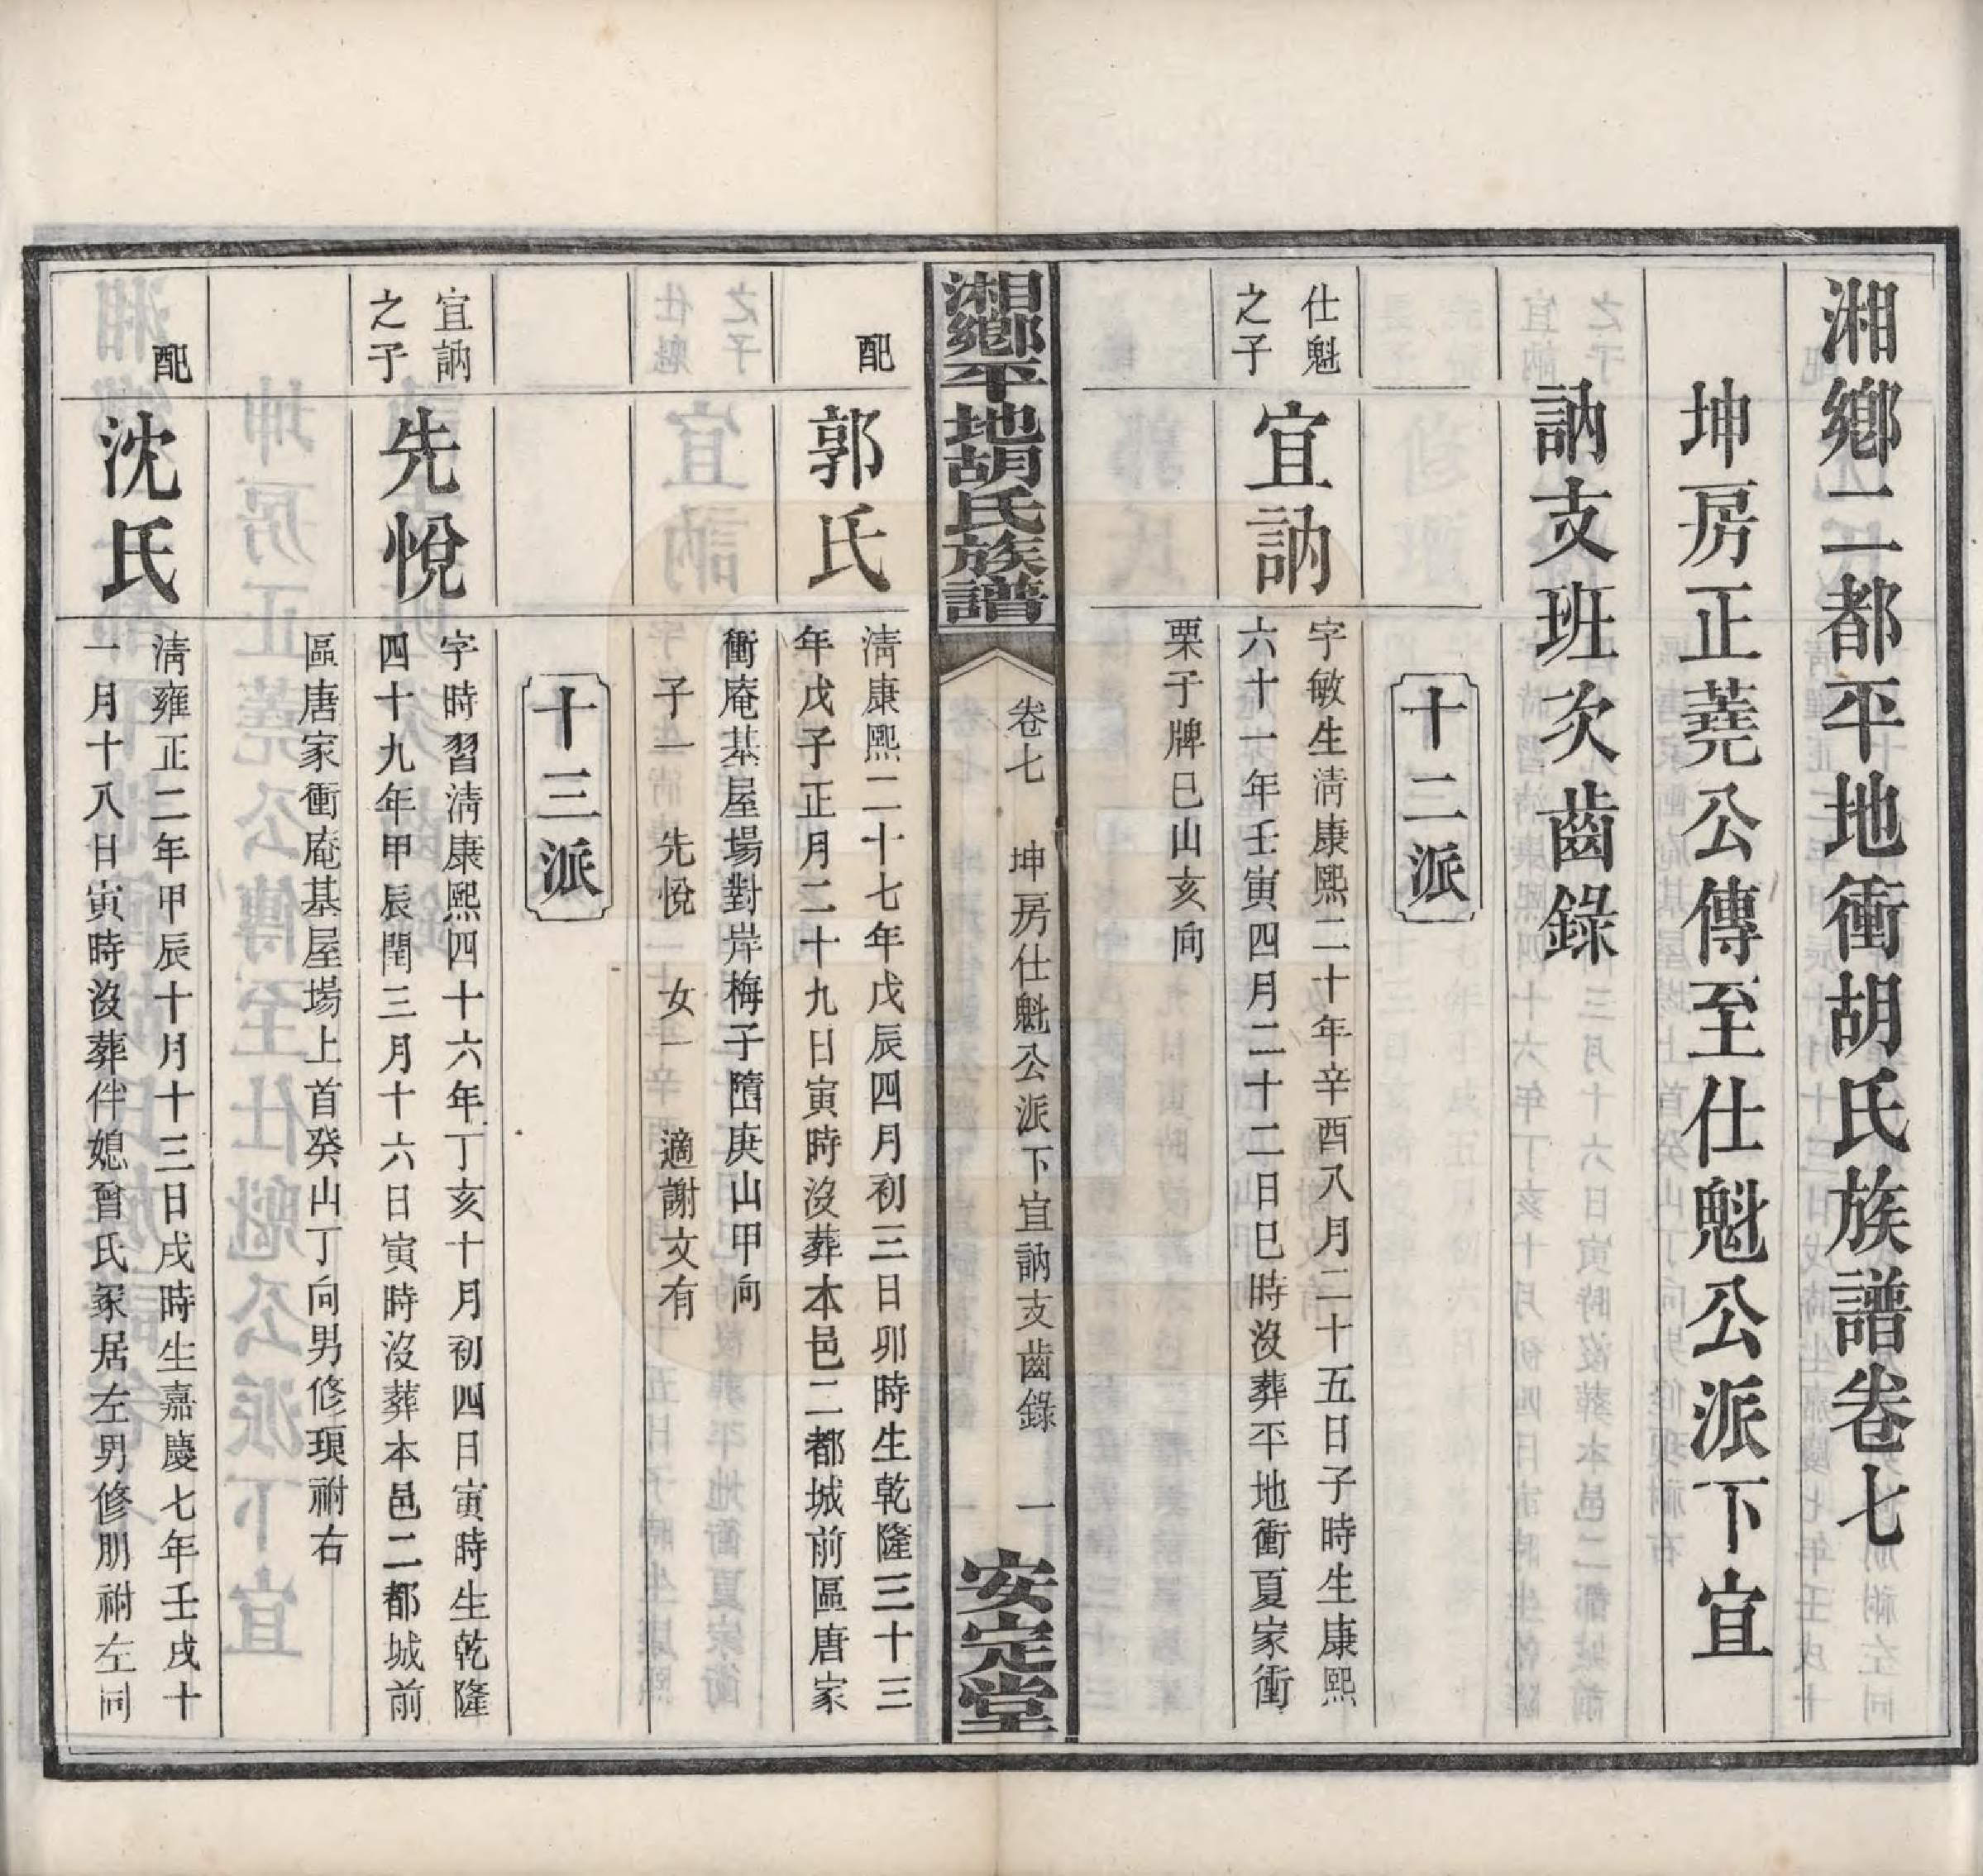 湘鄉二都平地衝胡氏族譜卷七
坤房正蕘公傳至仕魁公派下宜
訥支班次齒錄
十二派
仕魁
之子
宜訥
字敏生清康熙二十年辛酉八月二十五日子時生康熙
六十一年壬寅四月二十二日巳時沒葬平地衝夏家衝
栗于牌巳山亥向
湘鄉平地胡氏族譜
卷七 坤房仕魁公派下宜訥支齒錄 一
安定堂
配
郭氏
清康熙二十七年戊辰四月初三日卯時生乾隆三十三
年戊子正月二十九日寅時沒葬本邑二都城前區唐家
衝庵基屋場對岸梅子墮庚山甲向
子一 先悅 女一 適謝文有
十三派
宜訥
之子
先悅
字時習清康熙四十六年丁亥十月初四日寅時生乾隆
四十九年甲辰閏三月十六日寅時沒葬本邑二都城前
區唐家衝庵基屋場上首癸山丁向男修頊祔右
配
沈氏
清雍正二年甲辰十月十三日戌時生嘉慶七年壬戌十
一月十八日寅時沒葬伴媳曾氏冢居左男修朋祔左同